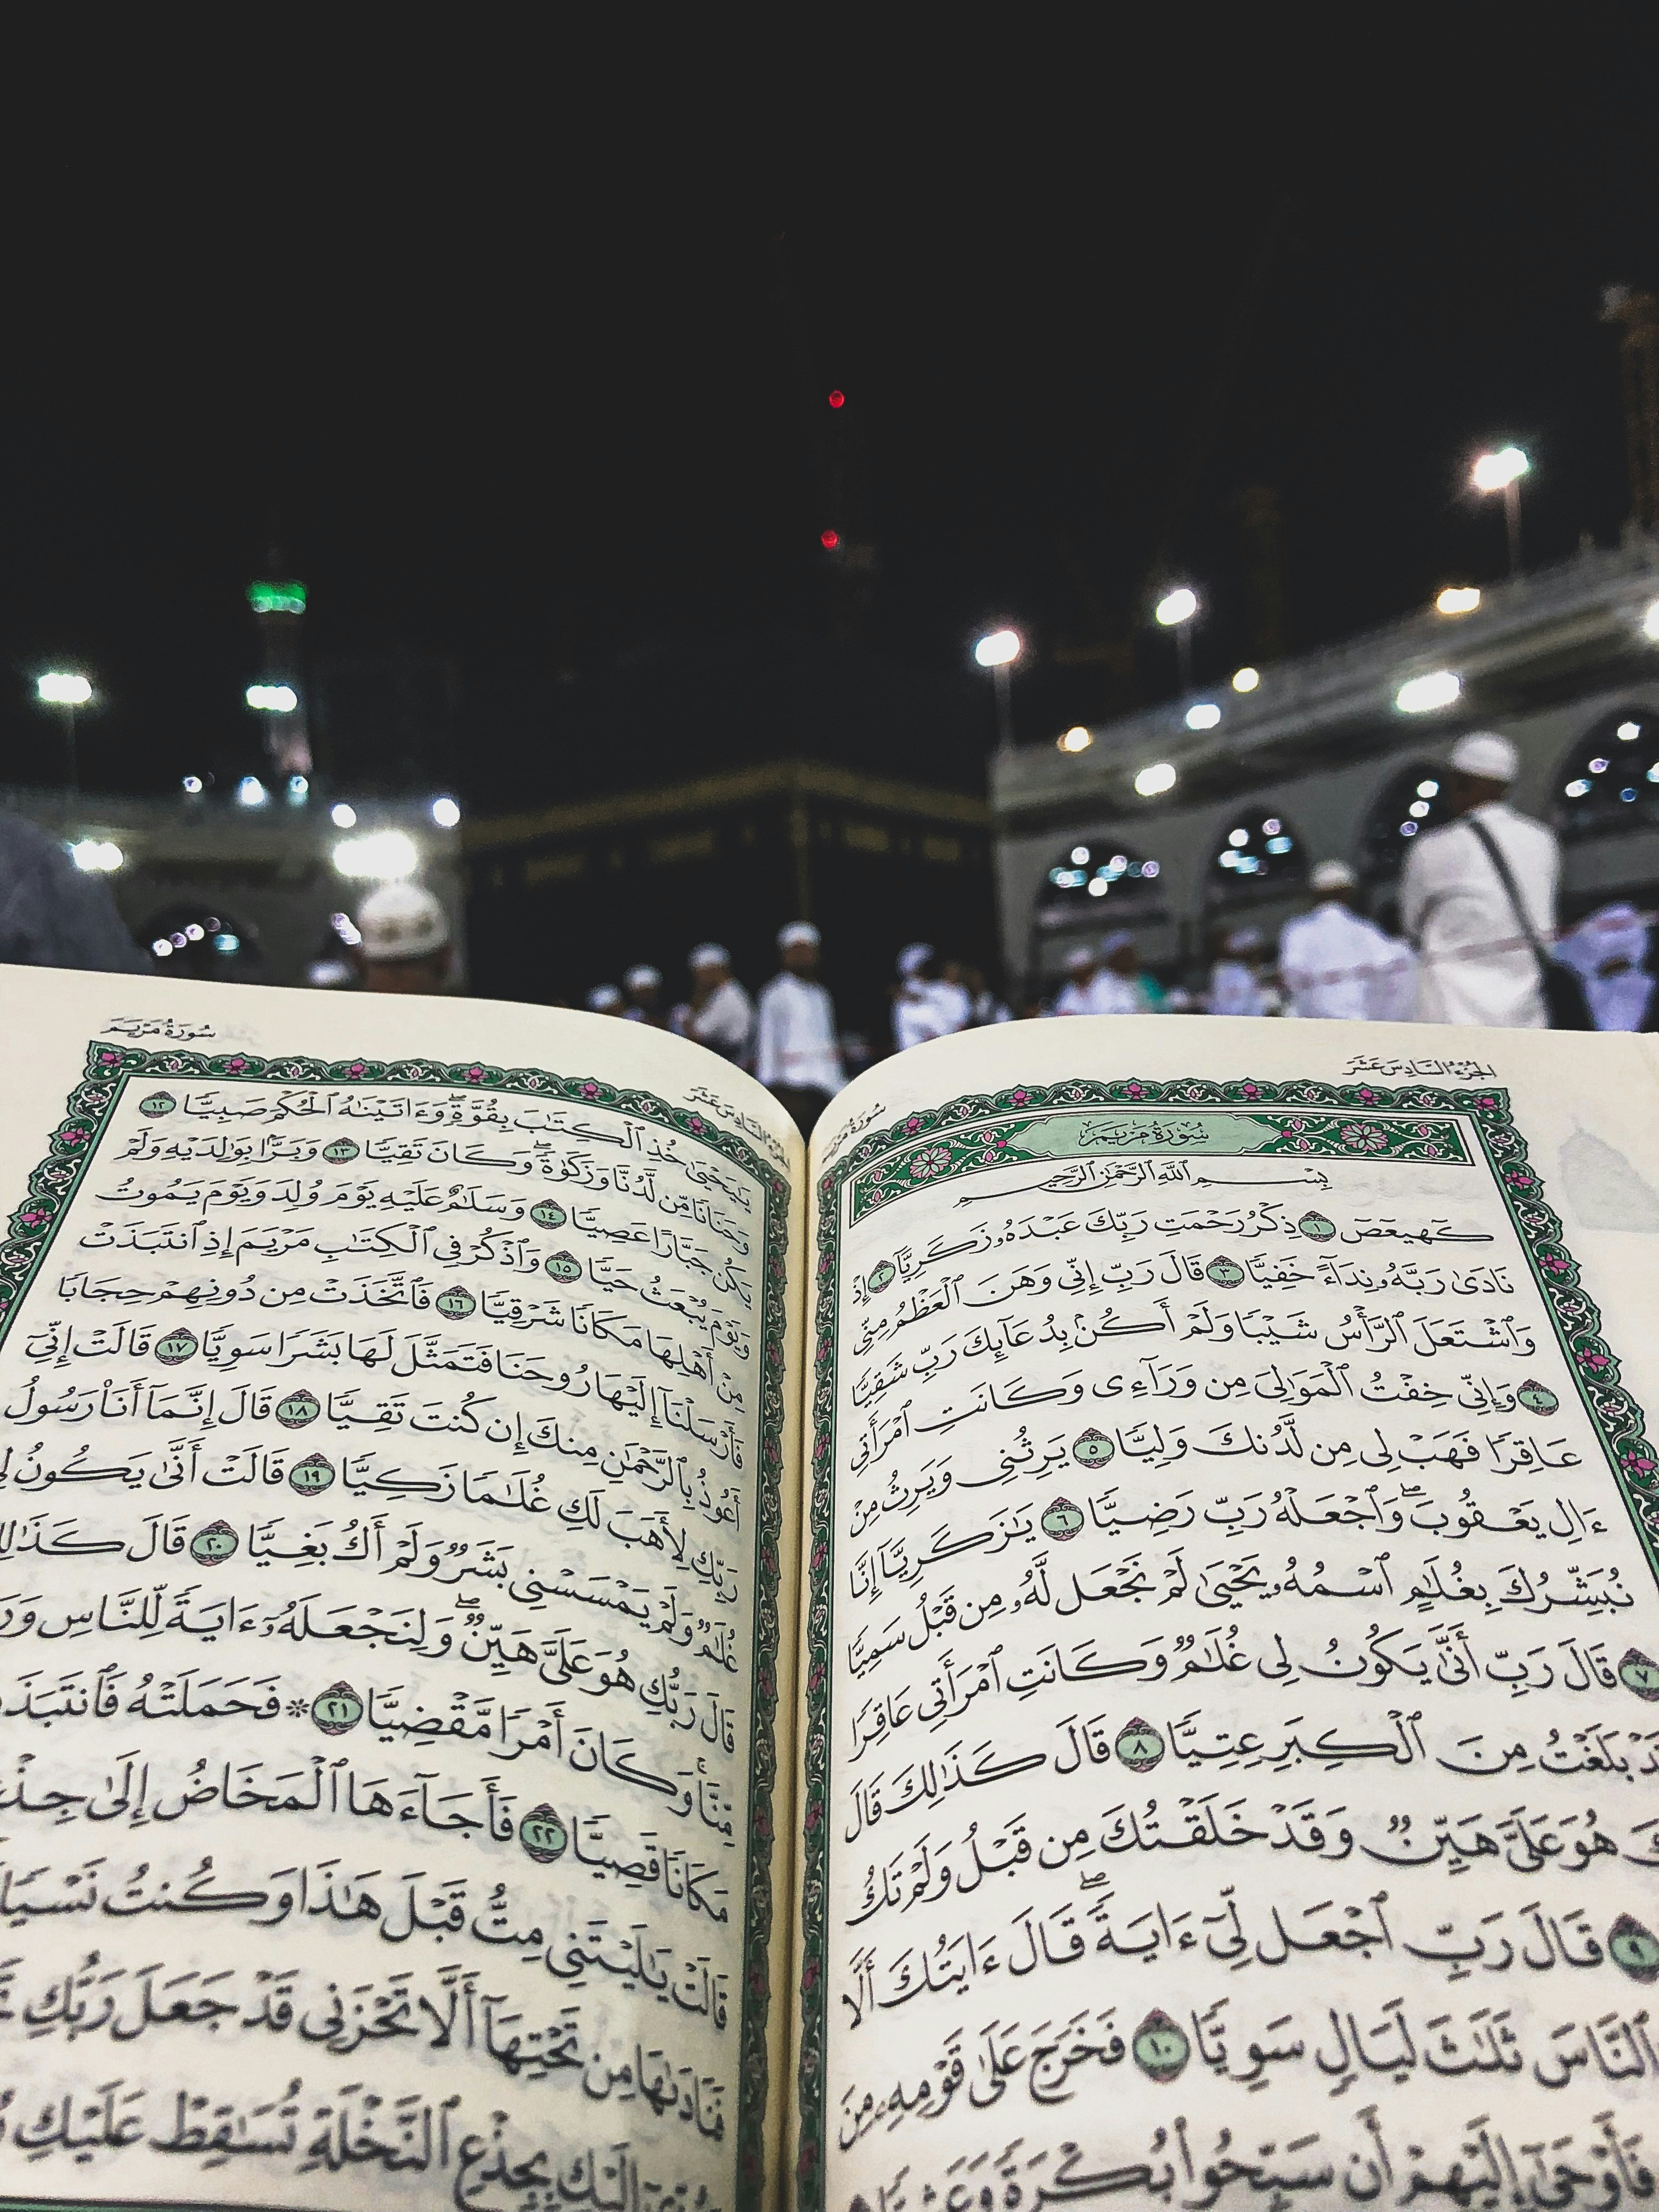 الجزء السادس عشر
سورة مريم
سُورَةُ مَرْيَمَ
بِسْمِ ٱللَّهِ ٱلرَّحْمَٰنِ ٱلرَّحِيمِ
كٓهيعٓصٓ ١ ذِكْرُ رَحْمَتِ رَبِّكَ عَبْدَهُۥ زَكَرِيَّآ ٢ إِذْ
نَادَىٰ رَبَّهُۥ نِدَآءً خَفِيًّا ٣ قَالَ رَبِّ إِنِّي وَهَنَ ٱلْعَظْمُ مِنِّي
وَٱشْتَعَلَ ٱلرَّأْسُ شَيْبًا وَلَمْ أَكُنۢ بِدُعَآئِكَ رَبِّ شَقِيًّا
٤ وَإِنِّي خِفْتُ ٱلْمَوَٰلِيَ مِن وَرَآءِي وَكَانَتِ ٱمْرَأَتِي
عَاقِرًا فَهَبْ لِي مِن لَّدُنكَ وَلِيًّا ٥ يَرِثُنِي وَيَرِثُ مِنْ
ءَالِ يَعْقُوبَۖ وَٱجْعَلْهُ رَبِّ رَضِيًّا ٦ يَٰزَكَرِيَّآ إِنَّا
نُبَشِّرُكَ بِغُلَٰمٍ ٱسْمُهُۥ يَحْيَىٰ لَمْ نَجْعَل لَّهُۥ مِن قَبْلُ سَمِيًّا
٧ قَالَ رَبِّ أَنَّىٰ يَكُونُ لِي غُلَٰمٌ وَكَانَتِ ٱمْرَأَتِي عَاقِرًا
بَلَغْتُ مِنَ ٱلْكِبَرِ عِتِيًّا ٨ قَالَ كَذَٰلِكَ قَالَ
هُوَ عَلَيَّ هَيِّنٌ وَقَدْ خَلَقْتُكَ مِن قَبْلُ وَلَمْ تَكُ
٩ قَالَ رَبِّ ٱجْعَل لِّيٓ ءَايَةًۖ قَالَ ءَايَتُكَ أَلَّا
ٱلنَّاسَ ثَلَٰثَ لَيَالٍ سَوِيًّا ١٠ فَخَرَجَ عَلَىٰ قَوْمِهِۦ مِنَ
فَأَوْحَىٰٓ إِلَيْهِمْ أَن سَبِّحُوا۟ بُكْرَةً وَعَشِيًّا
الجزء السادس عشر
سورة مريم
يَٰيَحْيَىٰ خُذِ ٱلْكِتَٰبَ بِقُوَّةٍۖ وَءَاتَيْنَٰهُ ٱلْحُكْمَ صَبِيًّا ١٢
وَحَنَانًا مِّن لَّدُنَّا وَزَكَوٰةًۖ وَكَانَ تَقِيًّا ١٣ وَبَرًّۢا بِوَٰلِدَيْهِ وَلَمْ
يَكُن جَبَّارًا عَصِيًّا ١٤ وَسَلَٰمٌ عَلَيْهِ يَوْمَ وُلِدَ وَيَوْمَ يَمُوتُ
وَيَوْمَ يُبْعَثُ حَيًّا ١٥ وَٱذْكُرْ فِي ٱلْكِتَٰبِ مَرْيَمَ إِذِ ٱنتَبَذَتْ
مِنْ أَهْلِهَا مَكَانًا شَرْقِيًّا ١٦ فَٱتَّخَذَتْ مِن دُونِهِمْ حِجَابًا
فَأَرْسَلْنَآ إِلَيْهَا رُوحَنَا فَتَمَثَّلَ لَهَا بَشَرًا سَوِيًّا ١٧ قَالَتْ إِنِّيٓ
أَعُوذُ بِٱلرَّحْمَٰنِ مِنكَ إِن كُنتَ تَقِيًّا ١٨ قَالَ إِنَّمَآ أَنَا۠ رَسُولُ
رَبِّكِ لِأَهَبَ لَكِ غُلَٰمًا زَكِيًّا ١٩ قَالَتْ أَنَّىٰ يَكُونُ لِي
غُلَٰمٌ وَلَمْ يَمْسَسْنِي بَشَرٌ وَلَمْ أَكُ بَغِيًّا ٢٠ قَالَ كَذَٰلِكِ
قَالَ رَبُّكِ هُوَ عَلَيَّ هَيِّنٌۖ وَلِنَجْعَلَهُۥٓ ءَايَةً لِّلنَّاسِ
مِّنَّاۚ وَكَانَ أَمْرًا مَّقْضِيًّا ٢١ ۞ فَحَمَلَتْهُ فَٱنتَبَذَتْ
مَكَانًا قَصِيًّا ٢٢ فَأَجَآءَهَا ٱلْمَخَاضُ إِلَىٰ جِذْعِ
قَالَتْ يَٰلَيْتَنِي مِتُّ قَبْلَ هَٰذَا وَكُنتُ نَسْيًا
فَنَادَىٰهَا مِن تَحْتِهَآ أَلَّا تَحْزَنِي قَدْ جَعَلَ رَبُّكِ
إِلَيْكِ بِجِذْعِ ٱلنَّخْلَةِ تُسَٰقِطْ عَلَيْكِ